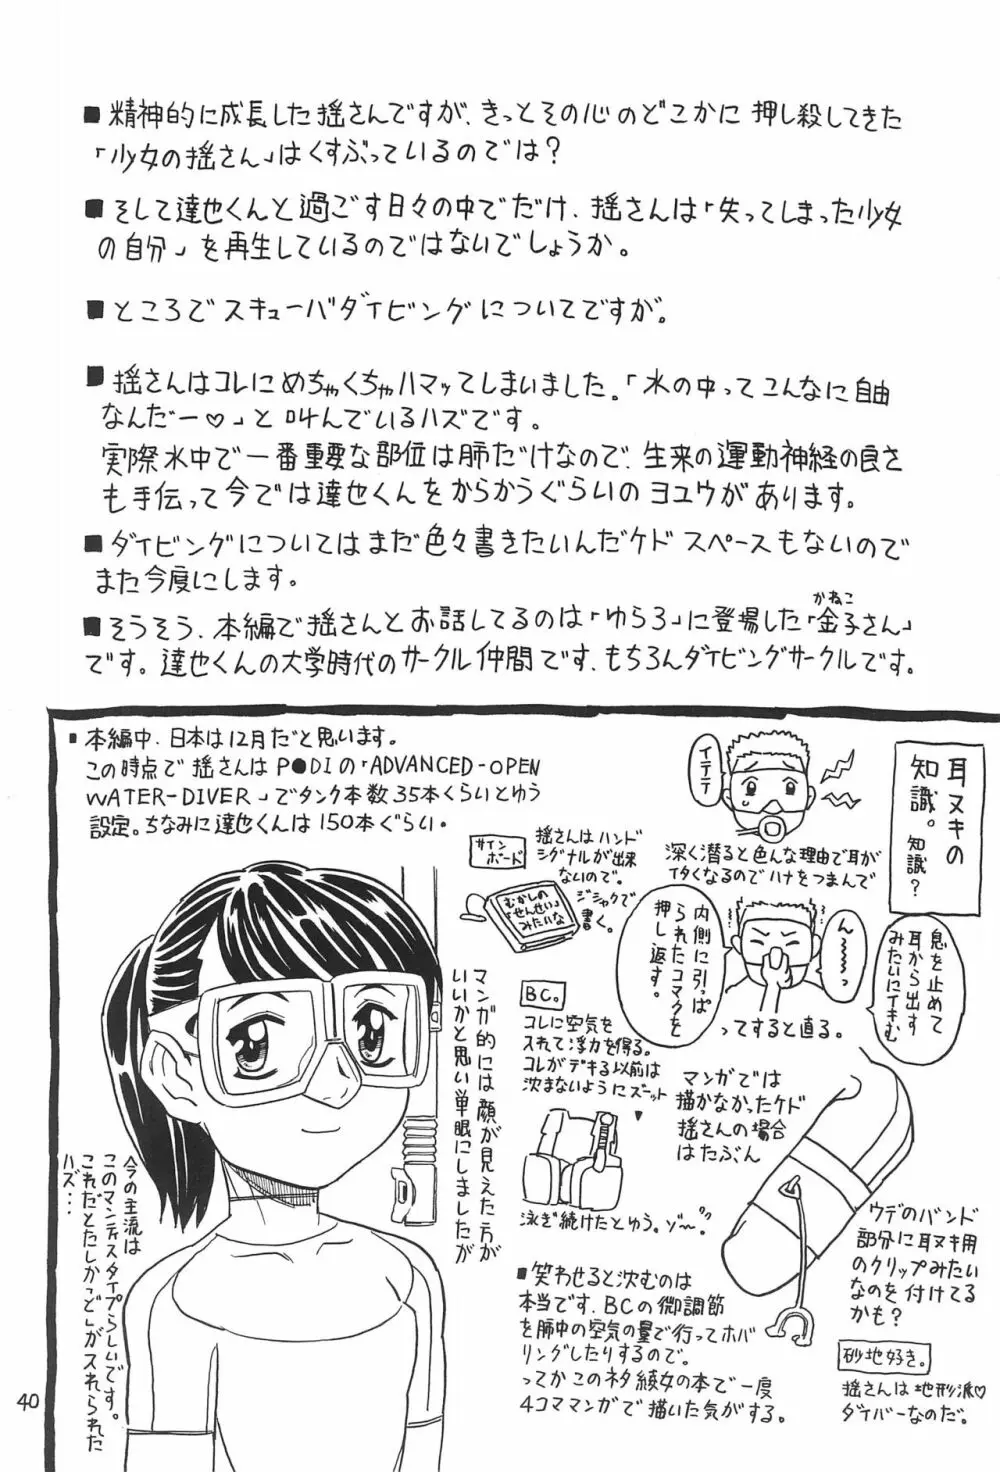 ■精神的に成長した揺さんですが、きっとその心のどこかに押し殺してきた
「少女の揺さん」はくすぶっているのでは？
■そして達也くんと過ごす日々の中でだけ、揺さんは「失ってしまった少女
の自分」を再生しているのではないでしょうか。
■ところでスキューバダイビングについてですが。
■揺さんはコレにめちゃくちゃハマッてしまいました。「水の中ってこんなに自由
なんだー♡」と叫んでいるハズです。
実際水中で一番重要な部位は肺だけなので、生来の運動神経の良さ
も手伝って今では達也くんをからかうぐらいのヨユウがあります。
■ダイビングについてはまだ色々書きたいんだケドスペースもないので
また今度にします。
■そうそう、本編で揺さんとお話してるのは「ゆらろ」に登場した「金子さん」
かねこ
です。達也くんの大学時代のサークル仲間です、もちろんダイビングサークルです。
■本編中、日本は12月だと思います。
この時点で揺さんはP●DIの「ADVANCED-OPEN
WATER-DIVER」でタンク本数35本くらいとゆう
設定。ちなみに達也くんは150本ぐらい。
耳ヌキの
知識。
知識？
イテテ
深く潜ると色んな理由で耳が
イタくなるのでハナをつまんで
息を止めて
耳から出す
みたいにイキむ
ん～～っ
内側に引っぱ
られたコマクを
押し返す。
ってすると直る。
サイン
ボード
揺さんはハンド
シグナルが出来
ないので。
ジシャクで
書く。
むかしの
「せんせい」
みたいな
BC。
コレに空気を
入れて浮力を得る。
コレがデキる以前は
沈まないようにズーット
泳ぎ続けたとゆう。ゾ～
マンガ的には顔が見えた方が
いいかと思い単眼にしましたが
今の主流は
このマンティスタイプらしいです。
これだとたしか「ど」が入れられた
ハズ…
マンガでは
描かなかったケド
揺さんの場合
はたぶん
ウデのバンド
部分に耳ヌキ用
のクリップみたい
なのを付けてる
かも？
■笑わせると沈むのは
本当です、BCの微調節
を肺中の空気の量で行ってホバ
リングしたりするので。
ってかこのネタ綾女の本で一度
4コママンガで描いた気がする。
砂地好き。
揺さんは地形派♡
ダイバーなのだ。
40